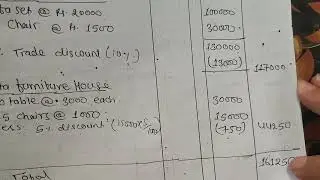 ta set @ Rs. 20000 100000
Chair @ Rs. 1500 30000
130000
: Trade discount (10%) (13000) 117000
ta furniture House
o table @ 3000 each 30000
5 chairs @ 1000 15000
ess: 5% discount (15000x5/100) (750) 44250
Total 161250